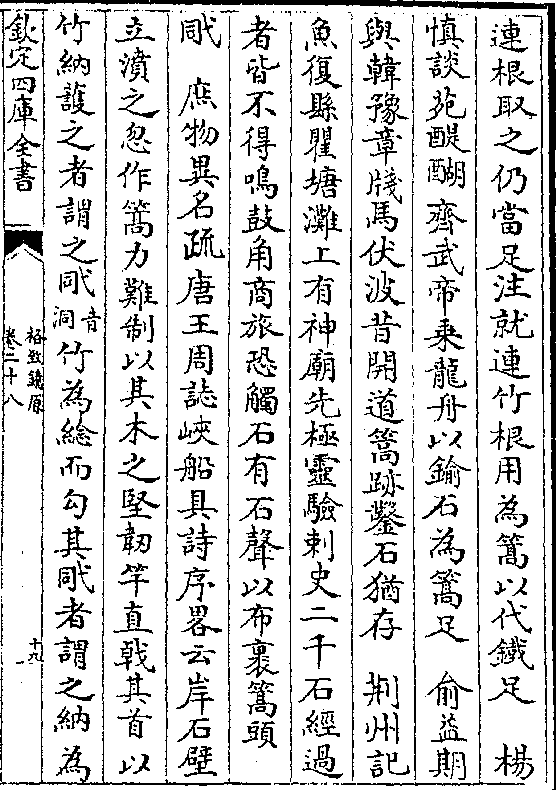 連根取之仍當足注就連竹根用為篙以代鐵足　楊
慎談苑醍醐齊武帝乗龍舟以鍮石為篙足　俞益期
與韓豫章牋馬伏波昔開道篙跡鑿石猶存　荆州記
魚復縣瞿塘灘上有神廟先極靈驗刺史二千石經過
者皆不得鳴鼓角商旅恐觸石有石聲以布裹篙頭
戙　庶物異名疏唐王周誌峽船具詩序畧云岸石壁
立濆之忽作篙力難制以其木之堅韌竿直戟其首以
竹納䕶之者謂之戙音洞竹為䋎而勾其戙者謂之納為
欽定四庫全書
格致鏡原
卷二十八
十九